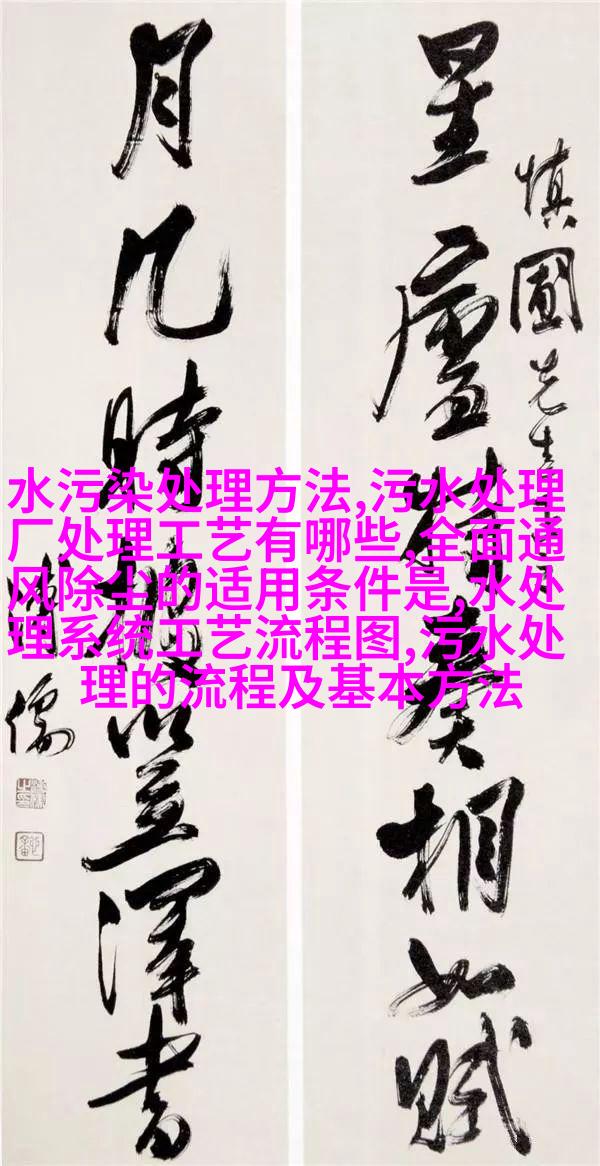 慎國先生
星廬奏相如賦
月几時笠澤書
水污染处理方法,污水处理
厂处理工艺有哪些,全面通
风除尘的适用条件是,水处
理系统工艺流程图,污水处
理的流程及基本方法